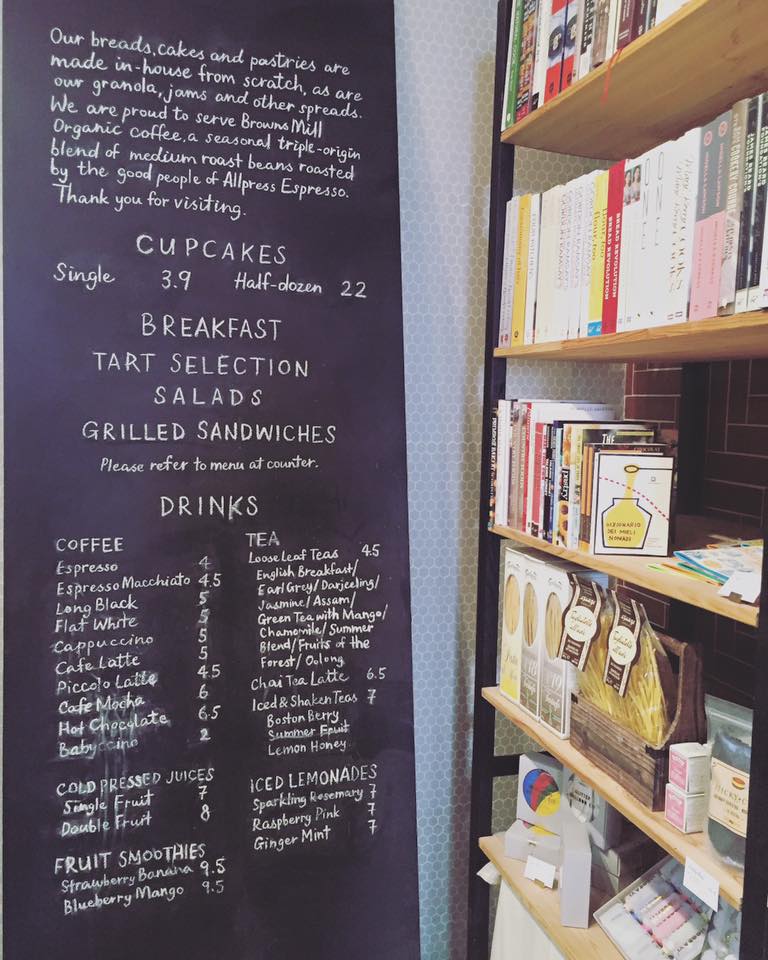 Our breads, cakes and pastries are
made in-house from scratch, as are
our granola, jams and other spreads.
We are proud to serve Browns Mill
Organic coffee, a seasonal triple-origin
blend of medium roast beans roasted
by the good people of Allpress Espresso.
Thank you for visiting.
CUPCAKES
Single 3.9 Half-dozen 22
BREAKFAST
TART SELECTION
SALADS
GRILLED SANDWICHES
Please refer to menu at counter.
DRINKS
COFFEE
Espresso 4
Espresso Macchiato 4.5
Long Black 5
Flat White 5
Cappuccino 5
Cafe Latte 5
Piccolo Latte 4.5
Cafe Mocha 6
Hot Chocolate 6.5
Babyccino 2
COLD PRESSED JUICES
Single Fruit 7
Double Fruit 8
FRUIT SMOOTHIES
Strawberry Banana 9.5
Blueberry Mango 9.5
TEA
Loose Leaf Teas 4.5
English Breakfast/
Earl Grey/Darjeeling/
Jasmine/Assam/
Green Tea with Mango/
Chamomile/Summer
Blend/Fruits of the
Forest/Oolong
Chai Tea Latte 6.5
Iced & Shaken Teas 7
Boston Berry
Summer Fruit
Lemon Honey
ICED LEMONADES
Sparkling Rosemary 7
Raspberry Pink 7
Ginger Mint 7
BREAD REVOLUTION
NIGELLA LAWSON
JAMES BEARD
poetry
THE
DIZIONARIO
DEI MIELI
NOMADI